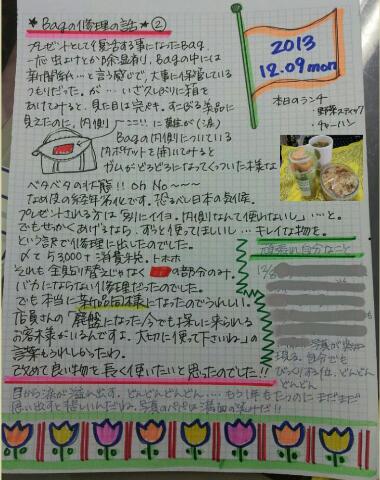 ★Bagの修理の話★②
プレゼントとして復活する事になったBag。
一応虫よけとか除湿剤、Bagの中には
新聞紙…と言う感じで、大事に保管している
つもりだった。が…いざ久しぶりに箱を
あけてみると、見た目は完ペキ。すこぶる美品に
見えたのに、内側に難が(涙)
Bagの内側についている
内ポケットを開いてみると
ゴムがどろどろになってくっついた様な
ベタベタの状態!! Oh No〜〜〜
なめ皮の経年劣化です。恐るべし日本の気候。
プレゼントされる方は「別にイイヨ。内側なんて使わないし」…と。
でもせっかくあげるなら、ずっと使ってほしいし…キレイな物を。
という訳で修理に出したのでした。
〆て53,000+消費税。トホホ
それも全貼り替えじゃなくの部分のみ。
バカにならない修理だったのでした。
でも本当に新品同様になったのでうれしい。
店員さんの「廃盤になった今でも探しに来られる
お客様がいるんですよ。大切に使って下さいね」の
言葉もうれしかったわ。
改めて良い物を長く使いたいと思ったのでした!!
2013
12.09 mon
本日のランチ
・野菜スティック
・チャーハン
頑張れ自分なこと
自分でも
びっくりする位、どんどん
どんどん
目から涙が溢れ出す。どんどんどんどん…もう1年もたつのにまだまだ
思い出すと悲しいんだね。